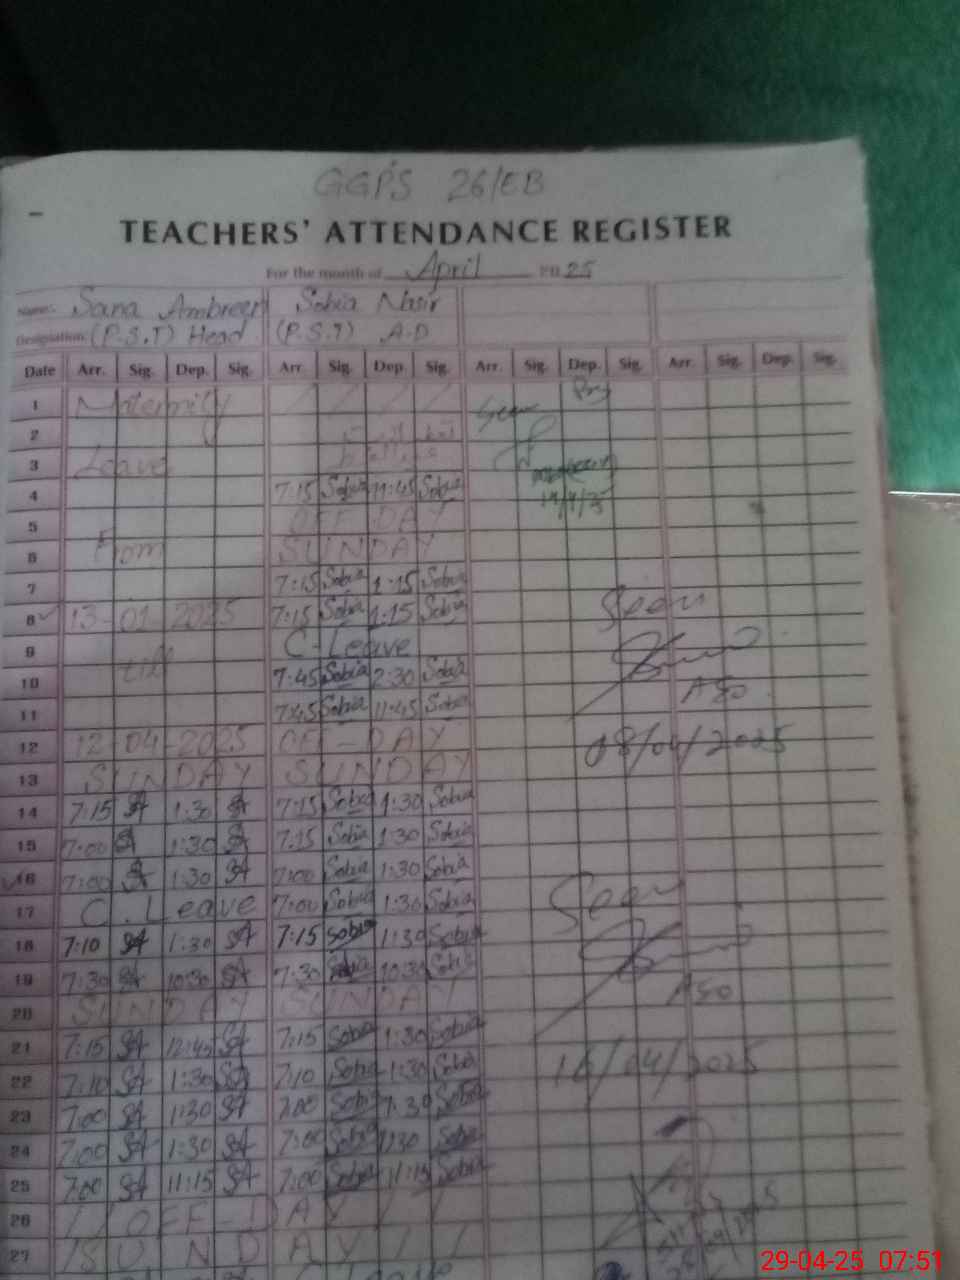 GGPS 26/EB
TEACHERS' ATTENDANCE REGISTER
For the month of April 20 25
Name: Sana Ambreen Sobia Nasir
Designation: (P.S.T) Head (P.S.T) A-D
Date Arr. Sig. Dep. Sig. Arr. Sig. Dep. Sig. Arr. Sig. Dep. Sig. Arr. Sig. Dep. Sig.
1 Maternity Seen
2
3 Leave
4 7:15 Sobia 11:45 Sobia
5 OFF DAY
6 From SUNDAY
7 7:15 Sobia 1:15 Sobia
8 13-01-2025 7:15 Sobia 1:15 Sobia Seen
9 C-Leave
10 till 7:45 Sobia 2:30 Sobia
11 7:45 Sobia 11:45 Sobia AEO
12 12-04-2025 OFF-DAY 08/04/2025
13 SUNDAY SUNDAY
14 7:15 SA 1:30 SA 7:15 Sobia 1:30 Sobia
15 7:00 SA 1:30 SA 7:15 Sobia 1:30 Sobia
16 7:00 SA 1:30 SA 7:00 Sobia 1:30 Sobia
17 C.Leave 7:00 Sobia 1:30 Sobia Seen
18 7:10 SA 1:30 SA 7:15 Sobia 1:30 Sobia
19 7:30 SA 10:30 SA 7:30 Sobia 10:30 Sobia
20 SUNDAY SUNDAY AEO
21 7:15 SA 12:45 SA 7:15 Sobia 1:30 Sobia
22 7:10 SA 1:30 SA 7:10 Sobia 1:30 Sobia 16/04/2025
23 7:00 SA 1:30 SA 7:00 Sobia 1:30 Sobia
24 7:00 SA 1:30 SA 7:00 Sobia 1:30 Sobia
25 7:00 SA 11:15 SA 7:00 Sobia 11:15 Sobia
26 OFF-DAY
27 SUNDAY
29-04-25 07:51